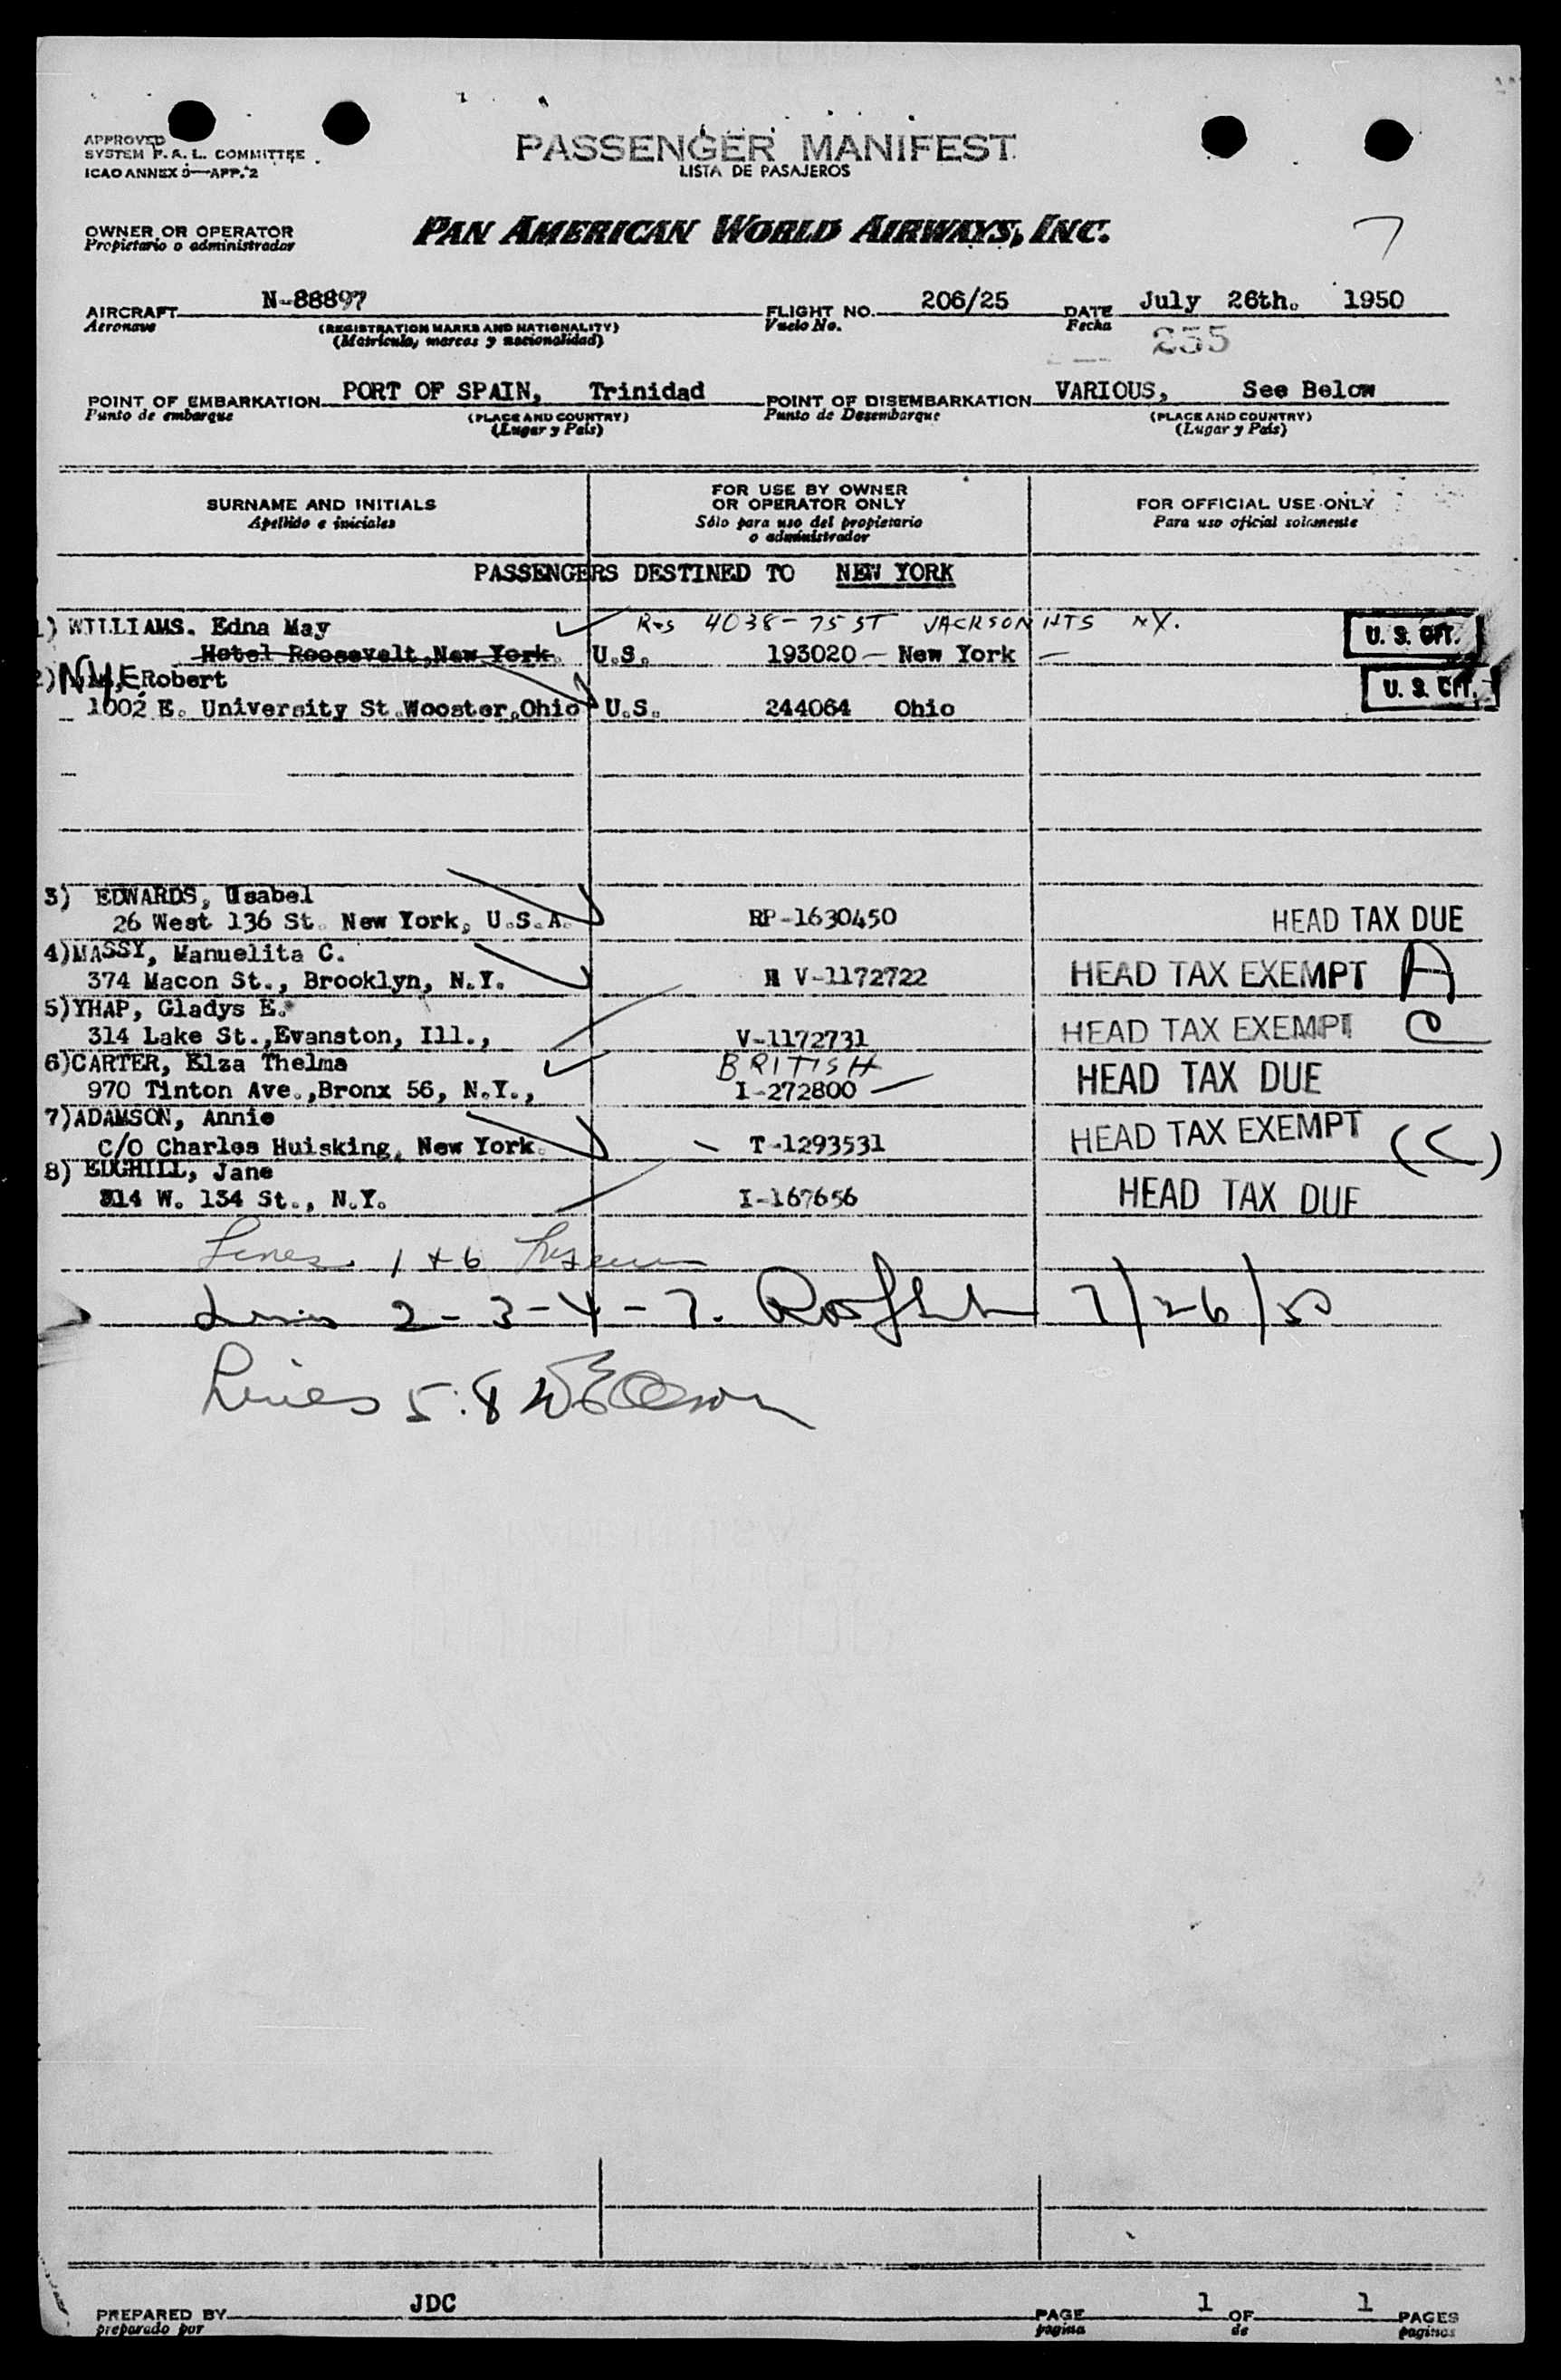 APPROVED
SYSTEM F. A. L. COMMITTEE
ICAO ANNEX 9—APP. 2
PASSENGER MANIFEST
LISTA DE PASAJEROS
OWNER OR OPERATOR
Propietario o administrador
PAN AMERICAN WORLD AIRWAYS, INC.
7
AIRCRAFT N-88897 FLIGHT NO. 206/25 DATE July 26th. 1950
Aeronave (REGISTRATION MARKS AND NATIONALITY) Vuelo No. Fecha
(Matrícula, marcas y nacionalidad)
255
POINT OF EMBARKATION PORT OF SPAIN, Trinidad POINT OF DISEMBARKATION VARIOUS, See Below
Punto de embarque (PLACE AND COUNTRY) Punto de Desembarque (PLACE AND COUNTRY)
(Lugar y País) (Lugar y País)
SURNAME AND INITIALS
Apellido e iniciales
FOR USE BY OWNER
OR OPERATOR ONLY
Sólo para uso del propietario
o administrador
FOR OFFICIAL USE ONLY
Para uso oficial solamente
PASSENGERS DESTINED TO NEW YORK
1) WILLIAMS. Edna May Res 4038-75 ST JACKSON HTS NY.
Hotel Roosevelt, New York. U.S. 193020 — New York — U. S. CIT.
2) NYE, Robert
1002 E. University St. Wooster, Ohio U.S. 244064 Ohio U. S. CIT.
3) EDWARDS, Usabel
26 West 136 St. New York, U.S.A. RP-1630450 HEAD TAX DUE
4) MASSY, Manuelita C.
374 Macon St., Brooklyn, N.Y. V-1172722 HEAD TAX EXEMPT A
5) YHAP, Gladys E.
314 Lake St., Evanston, Ill., V-1172731 HEAD TAX EXEMPT C
6) CARTER, Elza Thelma BRITISH
970 Tinton Ave., Bronx 56, N.Y., I-272800 — HEAD TAX DUE
7) ADAMSON, Annie
C/O Charles Huisking, New York. T-1293531 HEAD TAX EXEMPT (C)
8) EDGHILL, Jane
314 W. 134 St., N.Y. I-167656 HEAD TAX DUE
Lines 1 + 6
Lines 2-3-4-7. 7/26/50
Lines 5:8
PREPARED BY JDC PAGE 1 OF 1 PAGES
preparado por pagina de paginas